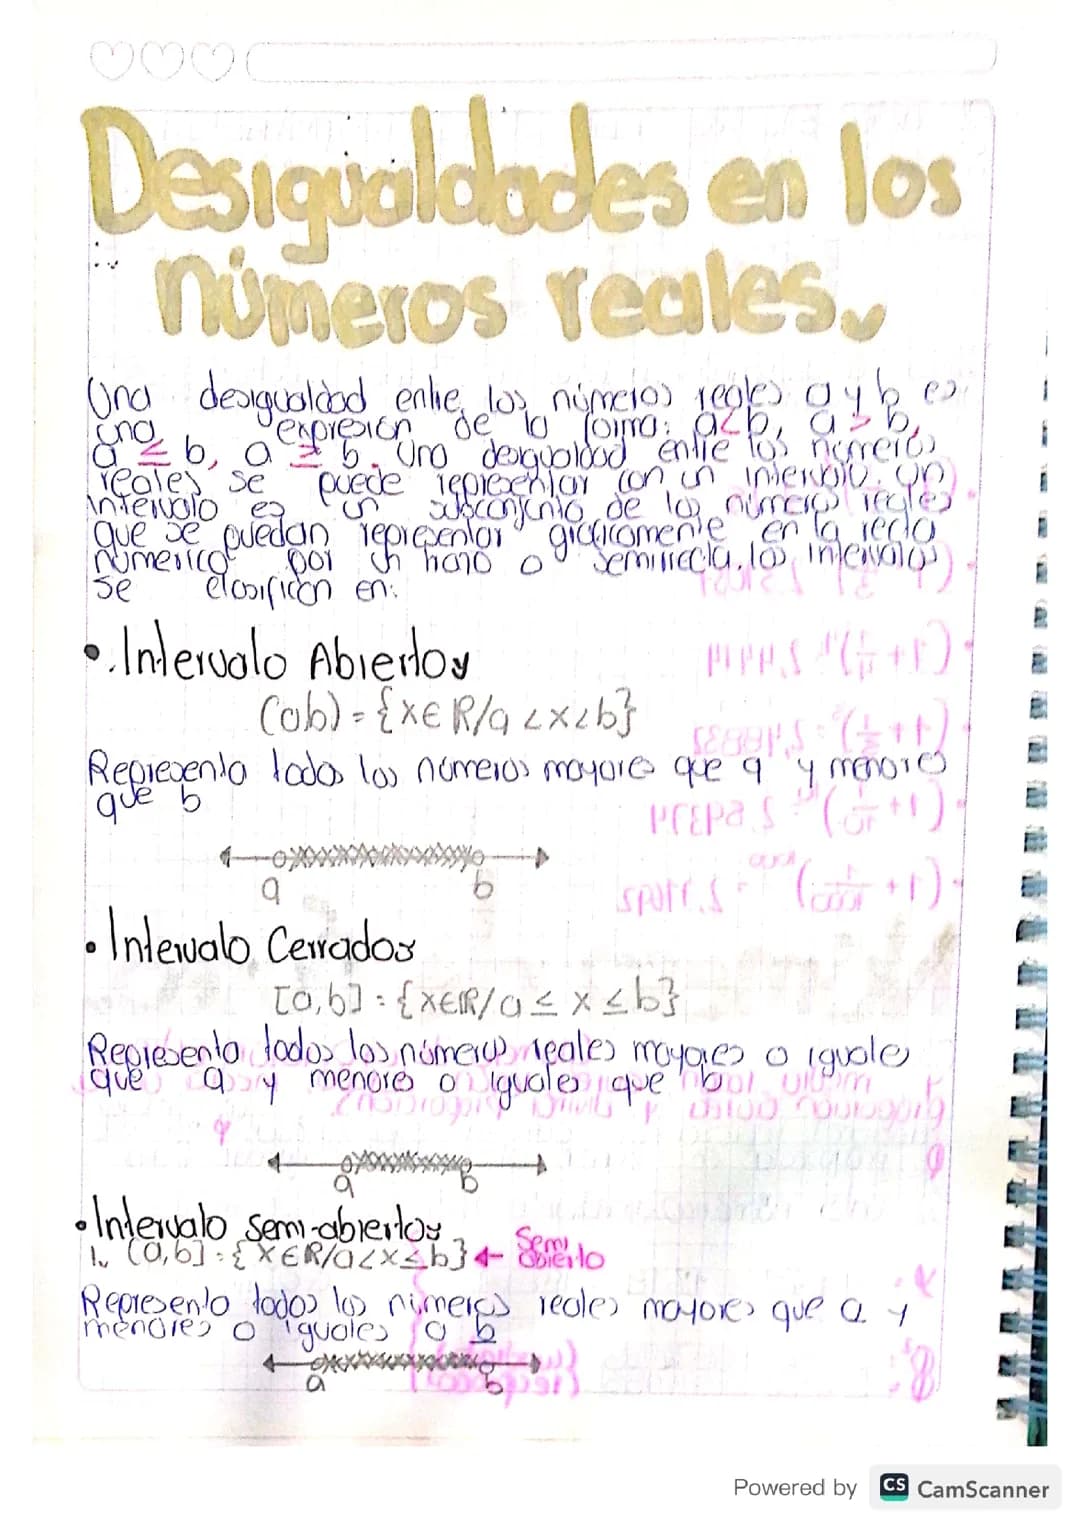 Desigualdades en los
números reales.
Una desigualdad entre los números reales a y b es
una expresión de la forma: a<b, a > b,
a ≤ b, a ≥ b. Una desigualdad entre los números
reales se puede representar con un intervalo. un
intervalo es un subconjunto de los números reales
que se puedan representar gráficamente en la recta
númerica por un trazo o semirrecta. los intervalos
se clasifican en:
• Intervalo Abierto
(ab) = {x∈R/a<x<b}
Representa todos los números mayores que a y menores
que b
a b
• Intervalo Cerrados
[a,b] = {x∈R/a ≤ x ≤ b}
Representa todos los números reales mayores o iguales
que a y menores o iguales que b
a b
• Intervalo semi-abiertos
1. (a,b] = {x∈R/a<x≤b} ← Semi
abierto
Representa todos los números reales mayores que a y
menores o iguales a b
a b
Powered by CS CamScanner